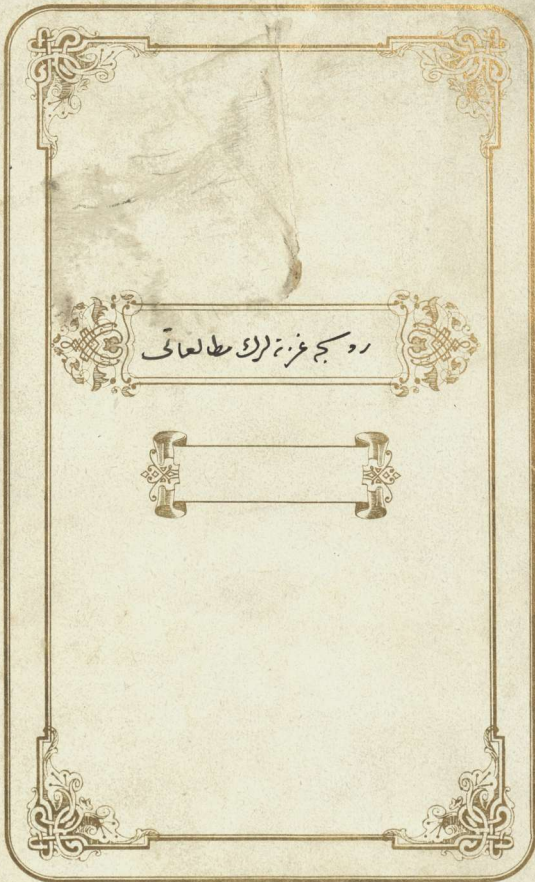 روسجه غزته لرك مطالعاتى